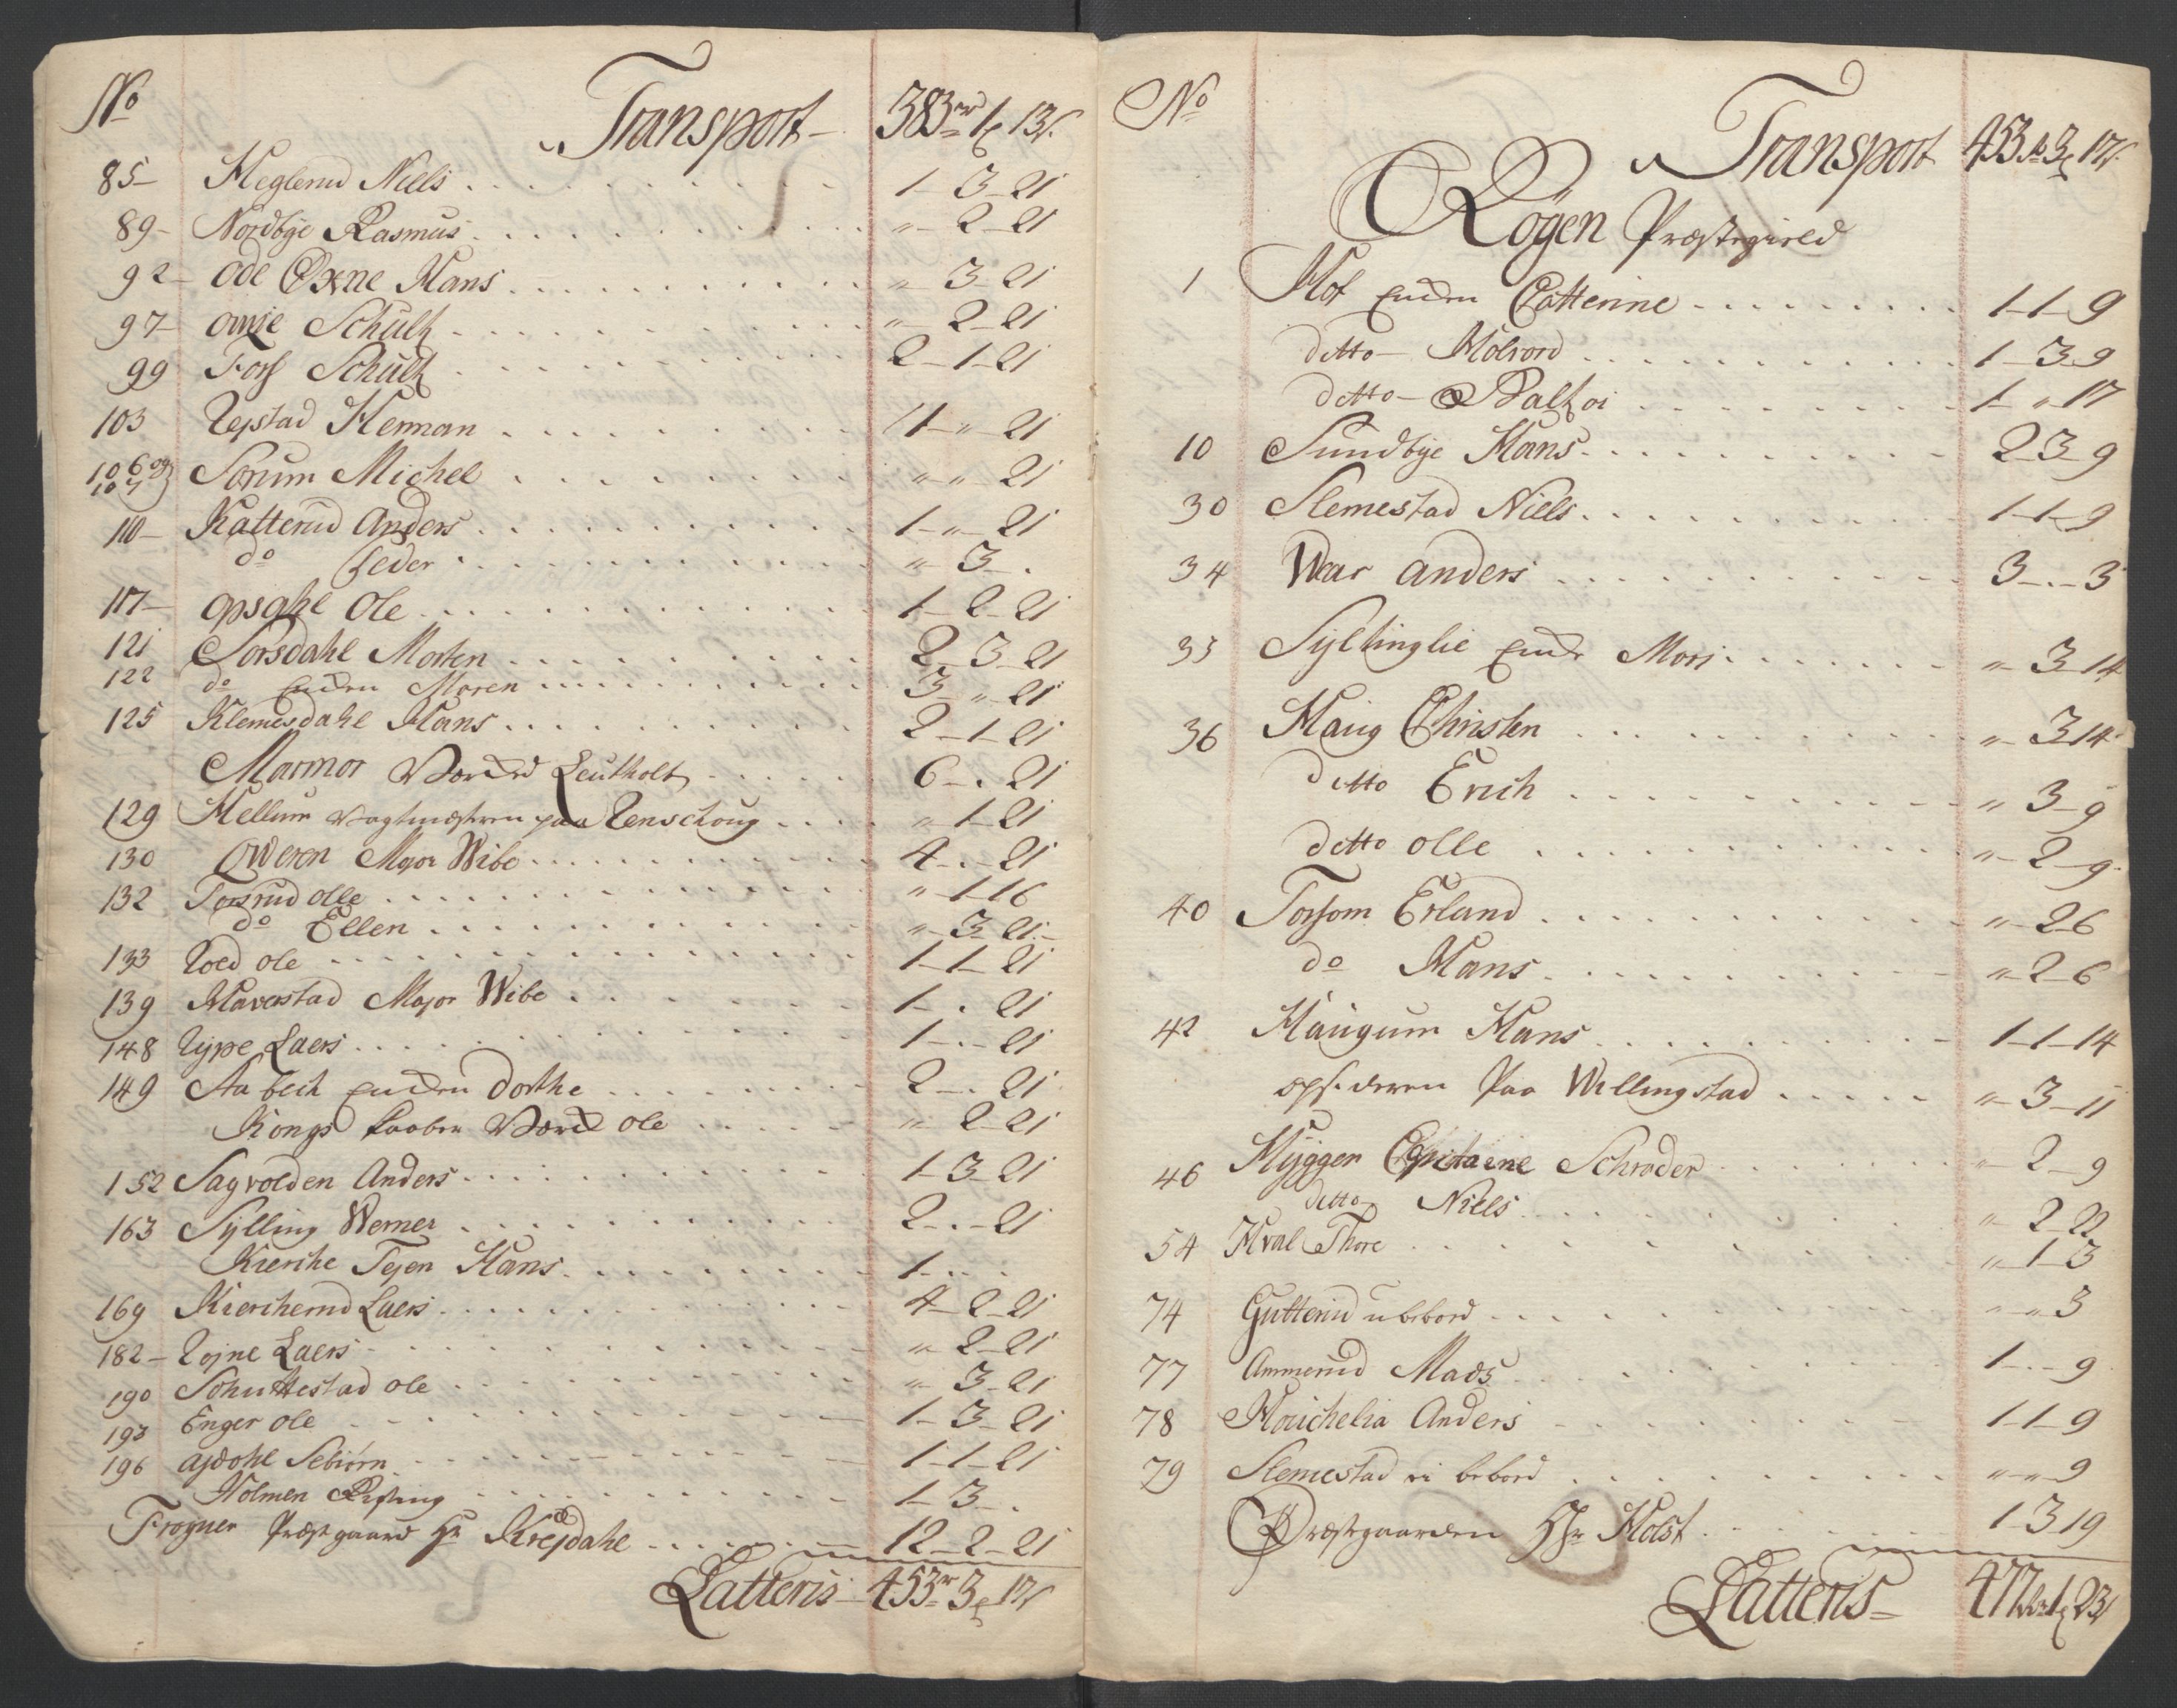 No
Transport 383rd 1 13
85 Heglerud Niels 1 3 21
89 Nordbye Rasmus " 2 21
92 Ode Oxne Hans " 3 21
97 Omje Schultz " 2 21
99 Foss Schultz 2 1 21
103 Rejstad Herman 1 " 21
106 og 107 Sørum Michel " " 21
110 Katterud Anders 1 " 21
do Peder " 3 .
117 Opsahl Ole 1 2 21
121 Sørsdahl Morten 2 3 21
122 do Enchen Maren 3 " 21
125 Klemesdahl Hans 2 1 21
Marmor Leutholt 6 . 21
129 Hellum Vagtmesteren paa Renschoug " 1 21
130 Qweren Major Wibe 4 . 21
132 Torsrud Olle " 1 16
do Ellen " 3 21
133 Roed Ole 1 1 21
139 Haverstad Major Wibe 1 . 21
148 Rype Laers 1 . 21
149 Aa bech Enchen Dorthe 2 . 21
Kongs Ole " 2 21
152 Sagvolden Anders 1 3 21
163 Sylling Werner 2 . 21
Kierche Tejen Hans 1 . .
169 Kiercherud Laers 4 2 21
182 Røjne Laers " 2 21
190 Schuttestad Ole " 3 21
193 Enger Ole 1 3 21
196 Ajdohl Sebiørn 1 1 21
Holmen 1 3 .
Frogner Præstgaard Hr Krejdahl 12 2 21
Latteris 453r 3 17
No
Transport 453 3 17
Røgen Præstegield
1 Hof Enchen Catterine 1 1 9
ditto Holvord 1 3 9
ditto Baltzer 1 " 17
10 Sundbye Hans 2 3 9
30 Slemestad Niels 1 1 9
34 Wear Anders 3 . 3
35 Syltinglie Mari " 3 14
36 Haug Christen " 3 14
ditto Erich " 3 9
ditto Olle " 2 9
40 Torsom Erland " 2 6
do Hans " 2 6
42 Haugum Hans 1 1 14
Opsideren Paa Willingstad " 3 11
46 Hyggen Capitaine Schrøder " 2 9
ditto Niels " 2 22
54 Hval Thore " 1 3
74 Gutterud ubebord " " 3
77 Ammerud Mads 1 . 9
78 Houchelia Anders 1 1 9
79 Slemestad u bebord " " 9
Præstgaarden Hr Holst 1 3 19
Latteris 477 1 23